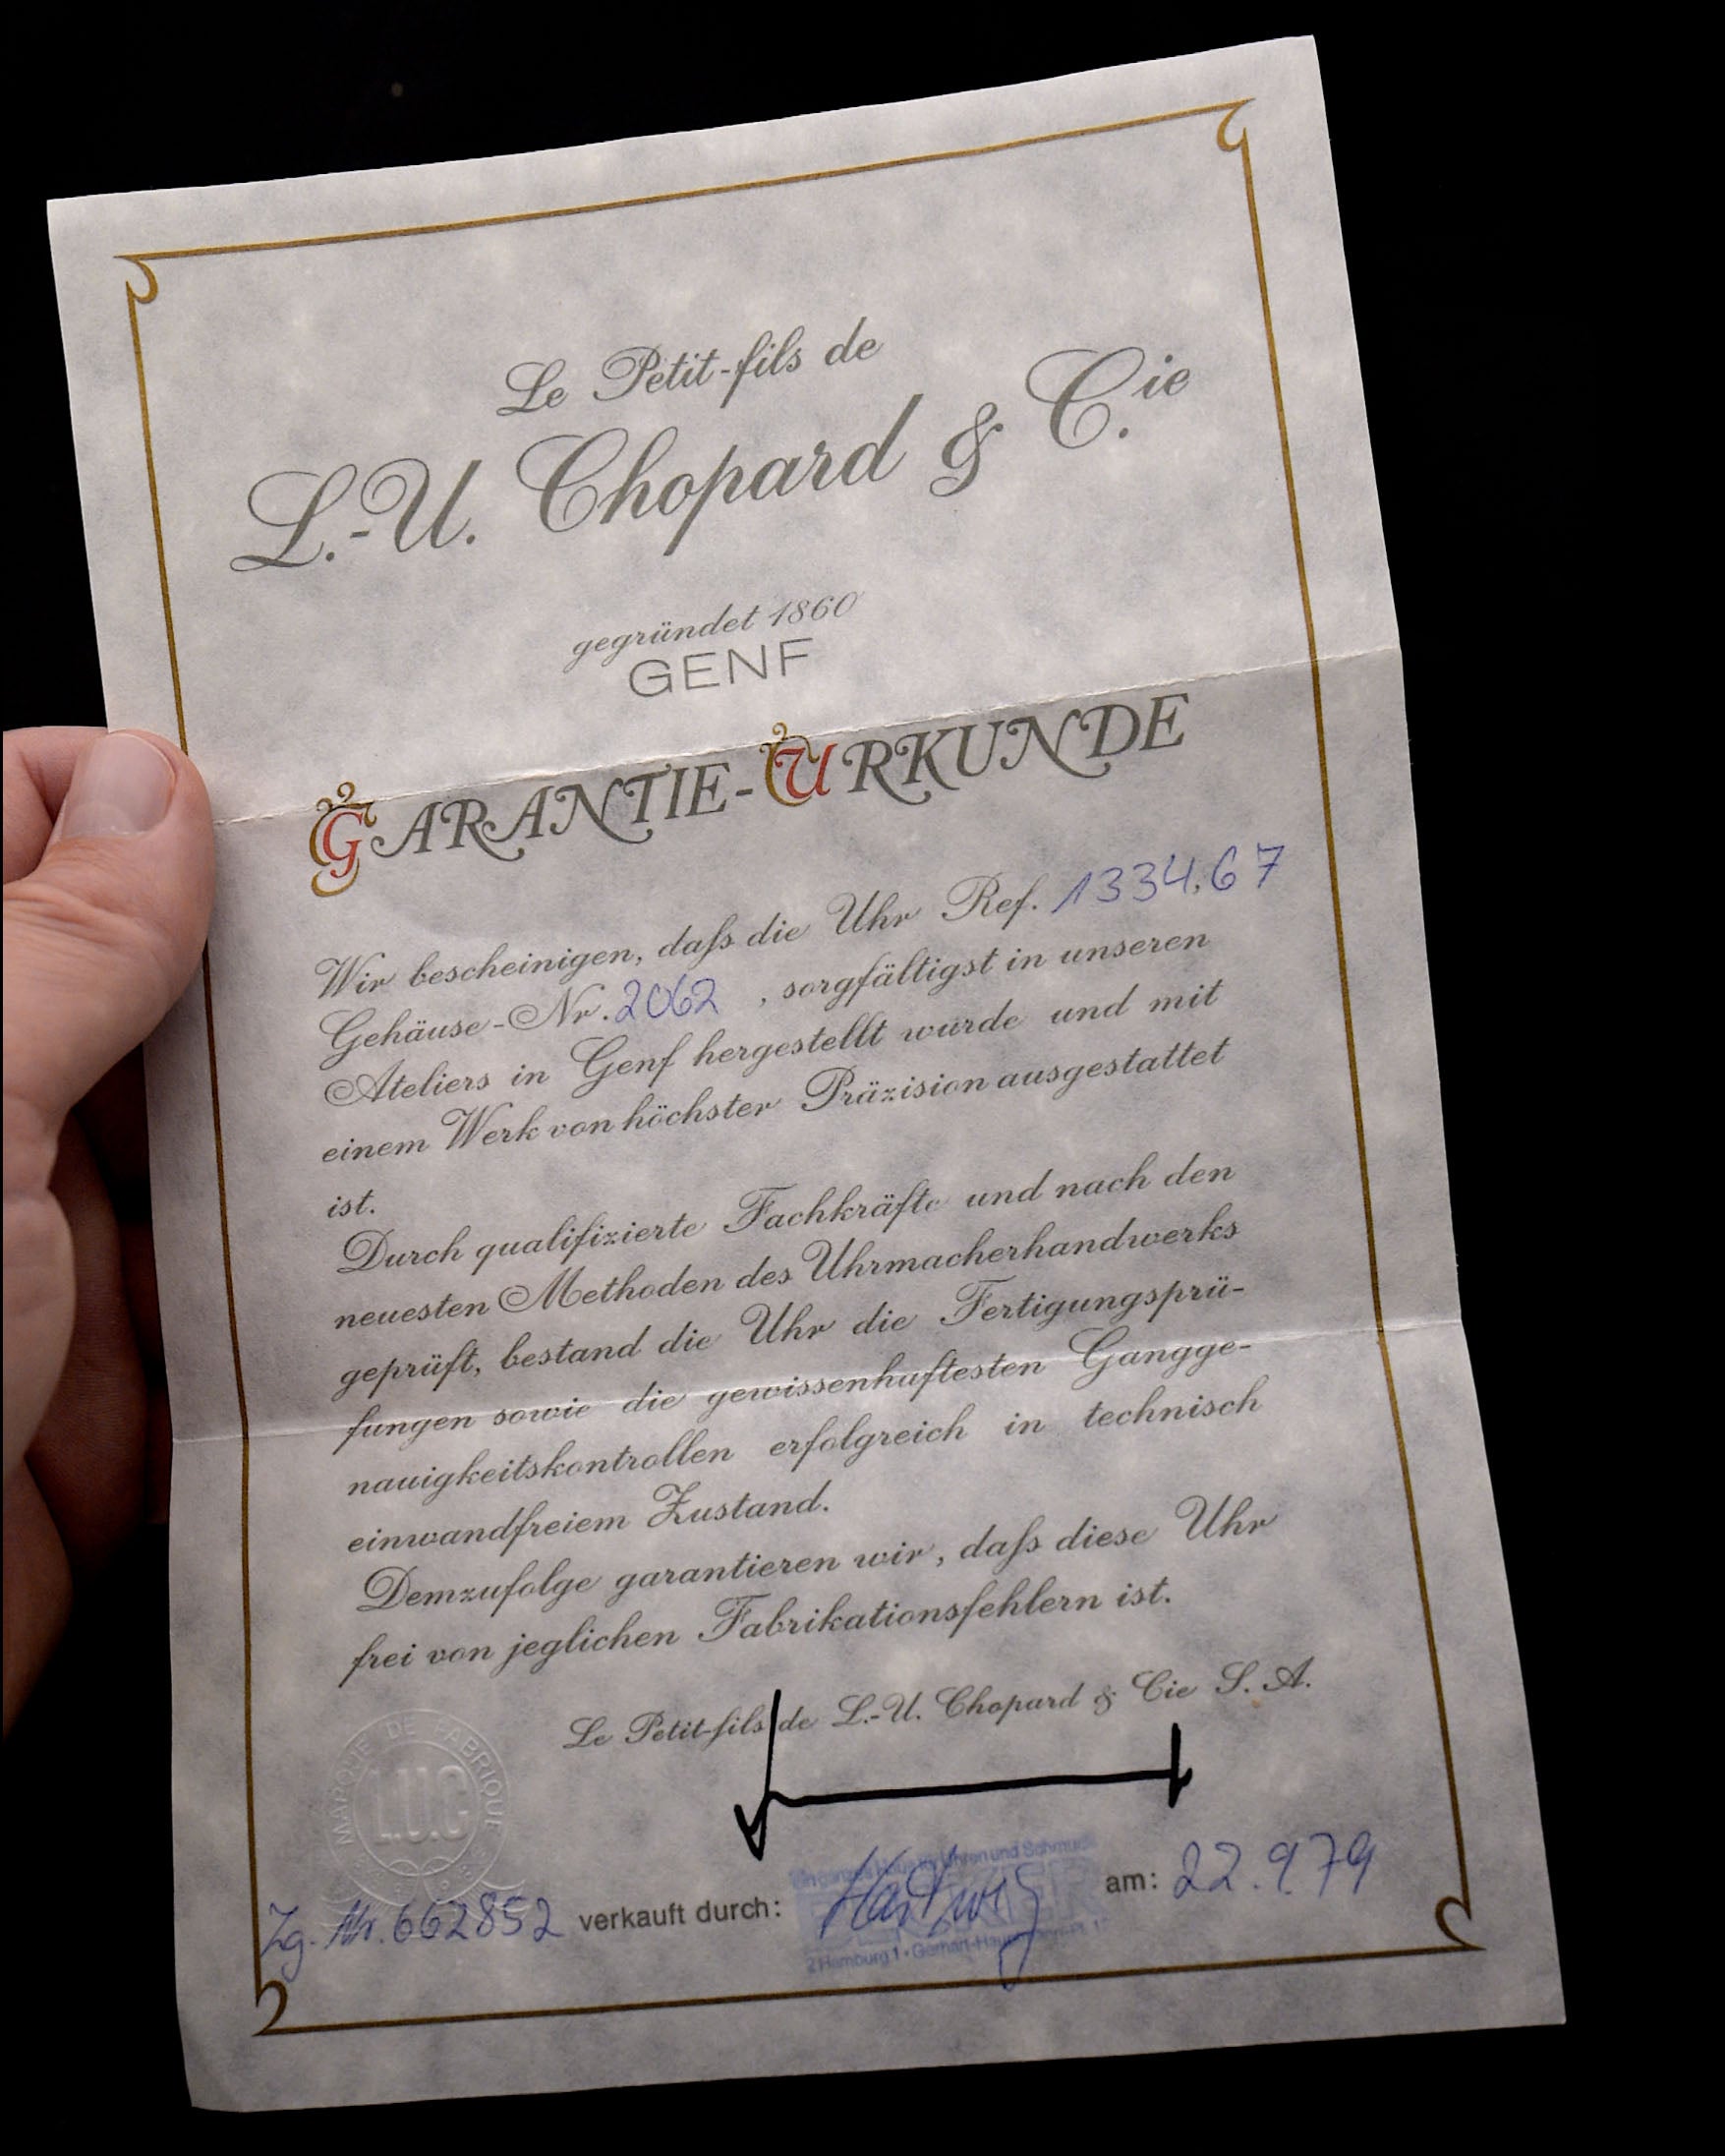 Le Petit-fils de
L.-U. Chopard & C.ie
gegründet 1860
GENF
GARANTIE-URKUNDE
Wir bescheinigen, daß die Uhr Ref. 1334.67
Gehäuse-Nr. 2062 , sorgfältigst in unseren
Ateliers in Genf hergestellt wurde und mit
einem Werk von höchster Präzision ausgestattet
ist.
Durch qualifizierte Fachkräfte und nach den
neuesten Methoden des Uhrmacherhandwerks
geprüft, bestand die Uhr die Fertigungsprü-
fungen sowie die gewissenhaftesten Gangge-
nauigkeitskontrollen erfolgreich in technisch
einwandfreiem Zustand.
Demzufolge garantieren wir, daß diese Uhr
frei von jeglichen Fabrikationsfehlern ist.
Le Petit-fils de L.-U. Chopard & Cie S. A.
MARQUE DE FABRIQUE
L.U.C
Uhren und Schmuck
Zg. Nr. 662852 verkauft durch: am: 22.9.79
2 Hamburg 1 • Gerhart-